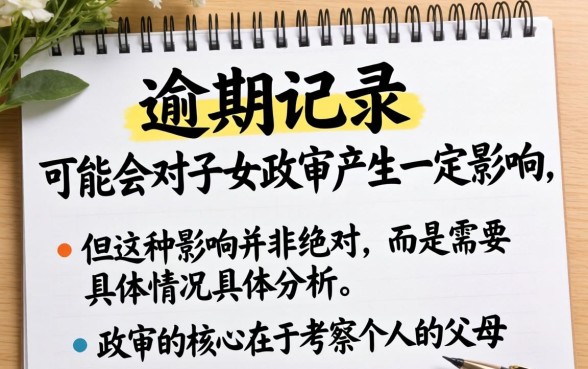 逾期记录
可能会对子女政审产生一定影响,
但这种影响并非绝对,而是需要
具体情况具体分析。
政审的核心在于考察个人的父母